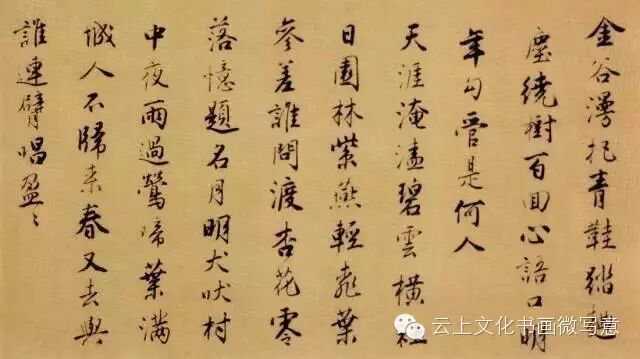 金谷漫把青鞋踏
塵繞樹百回心語口明
年勾管是何人
天涯淹溘碧雲橫社
日園林紫燕輕桃葉
參差誰問渡杏花零
落憶題名月明犬吠村
中夜雨過鶯啼葉滿
城人不歸來春又去與
誰連臂唱盈〻
云上文化书画微写意